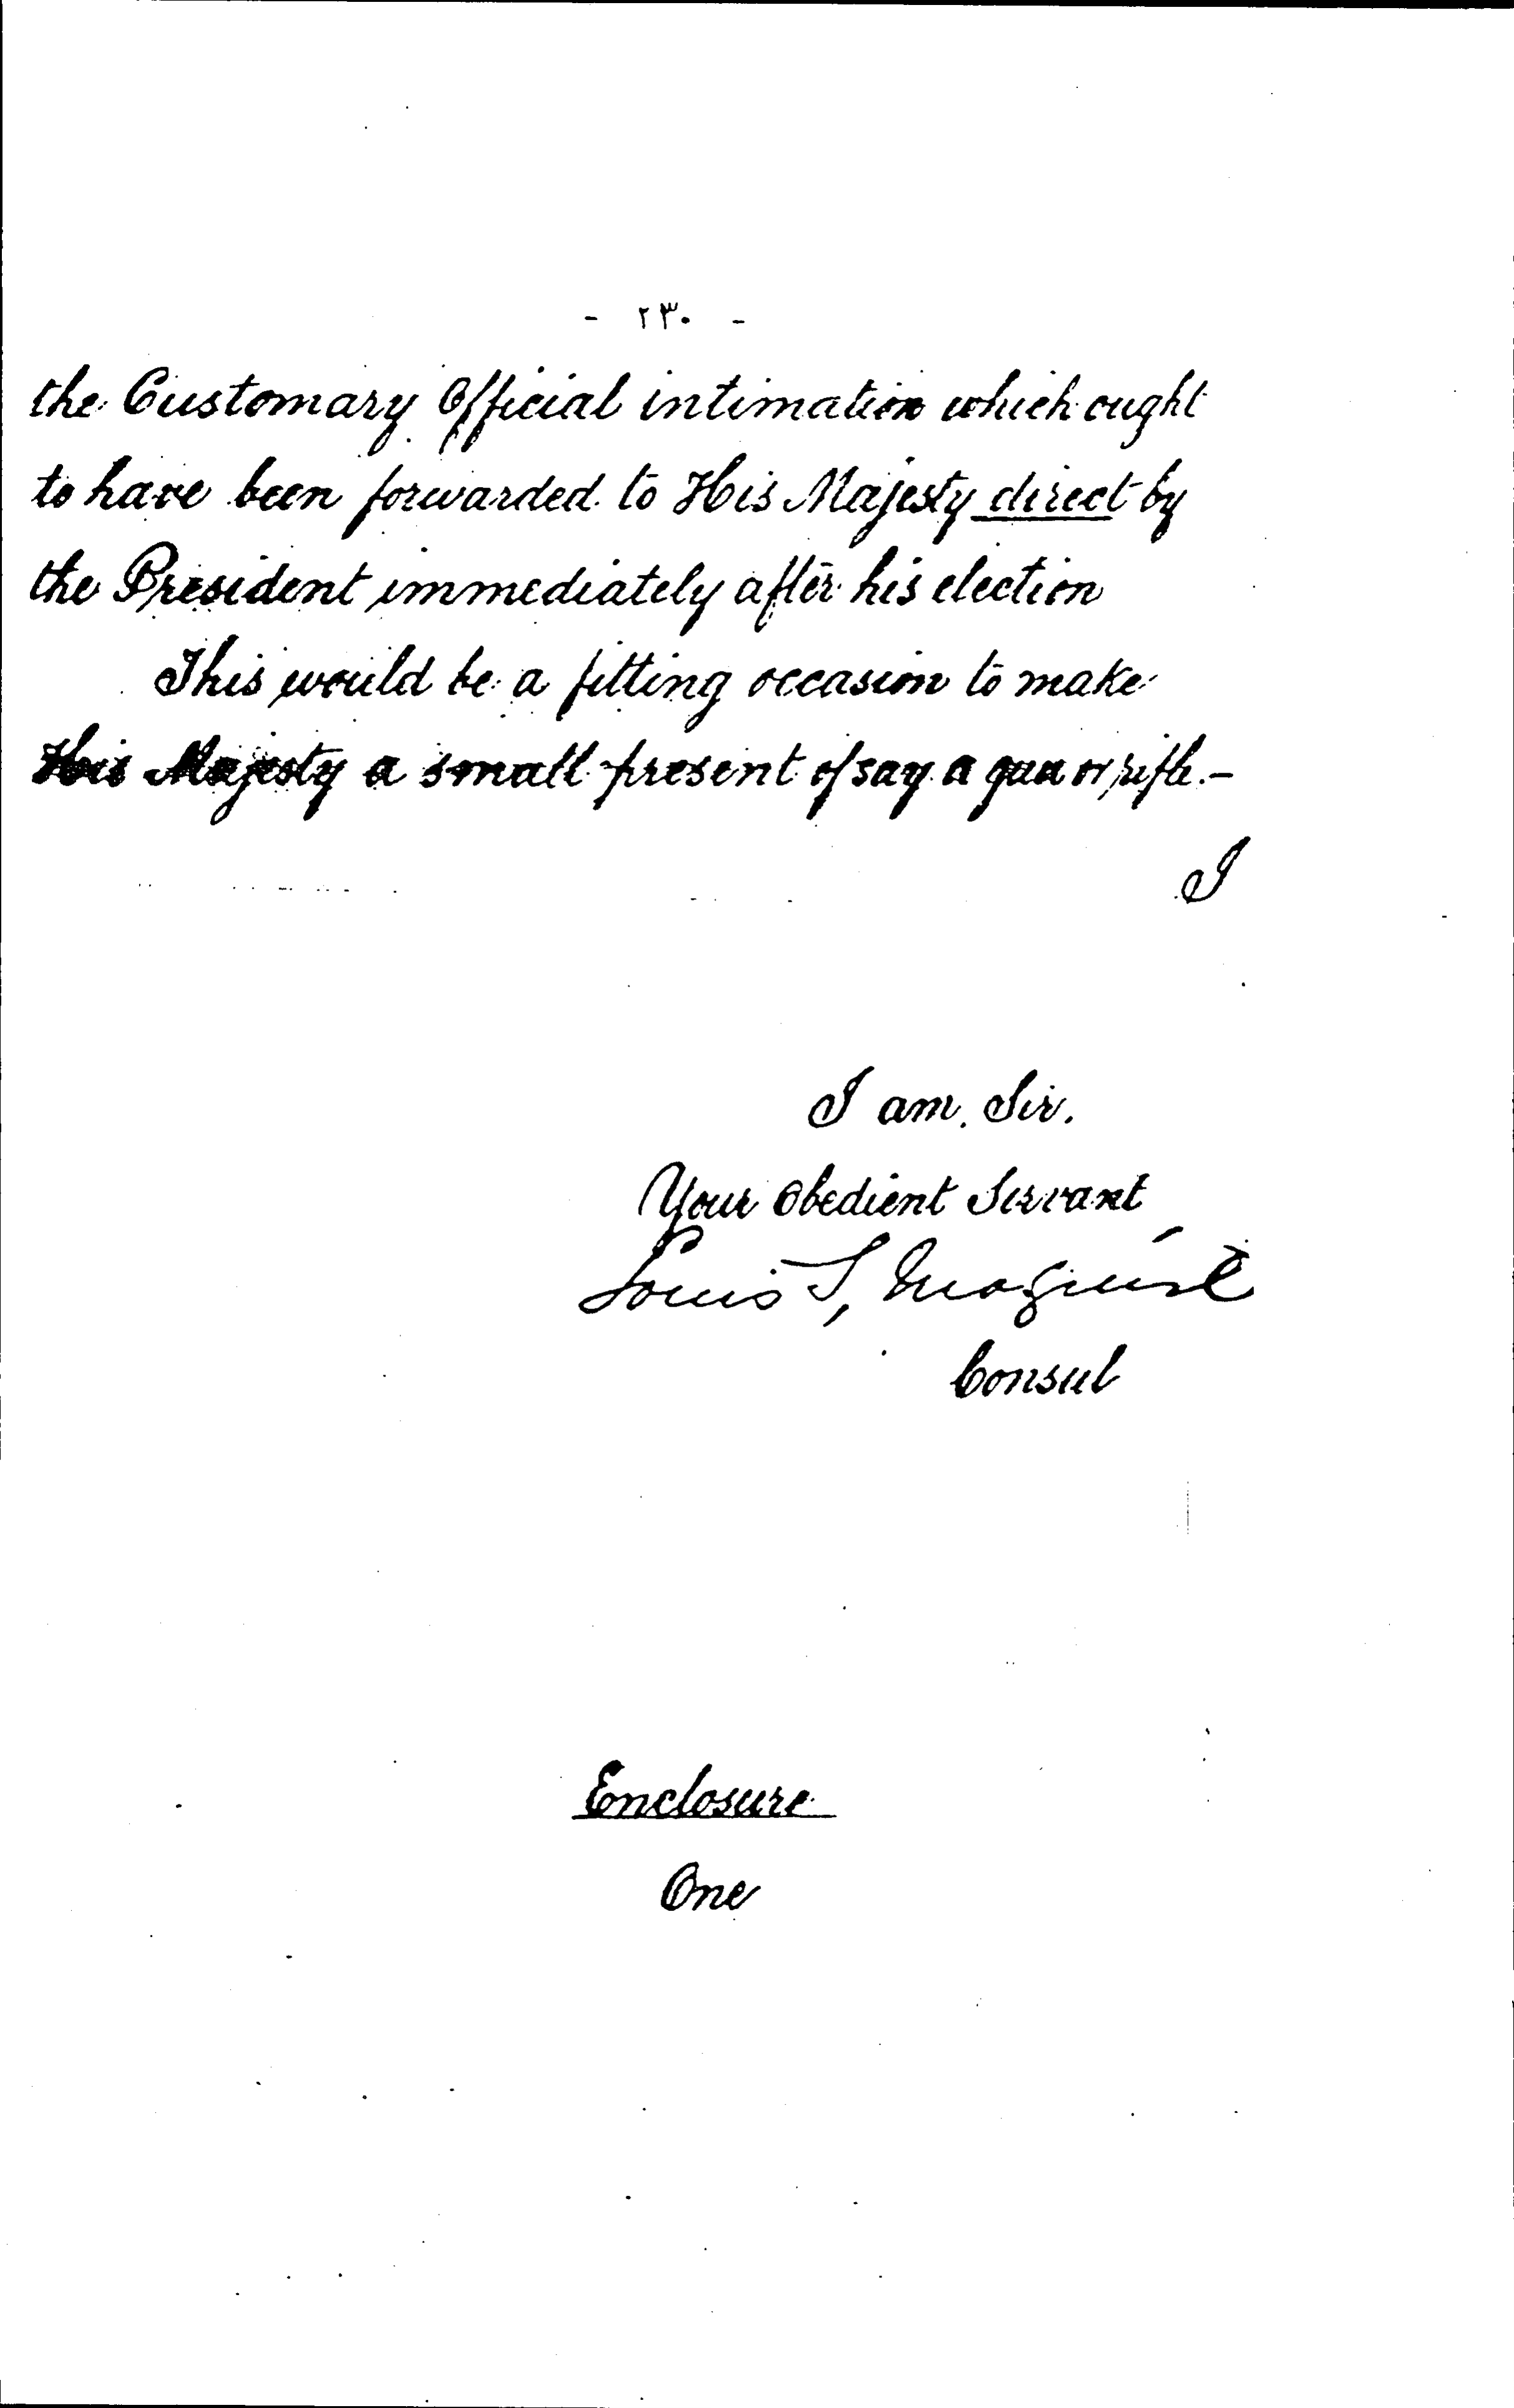 - ٢٣٠ -
the Customary Official intimation which ought
to have been forwarded to His Majesty direct by
the President immediately after his election
This would be a fitting occasion to make
His Majesty a small present of say a gun or rifle.-
I
I am, Sir.
Your Obedient Servant,
Louis S, Maguire
Consul
Enclosure
One